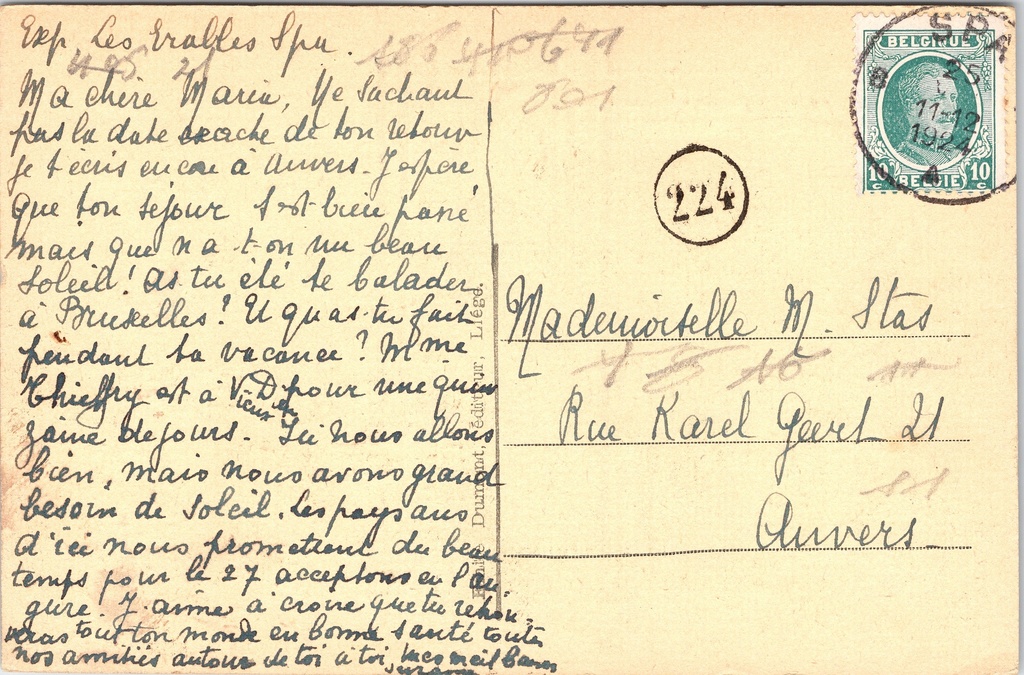 Exp. Les Erables Spa.
Ma chère Maria, Ne sachant
pas la date exacte de ton retour
je t'écris encore à Anvers. J'espère
que ton séjour s'est bien passé
mais que n'a-t-on un beau
soleil! As tu été te balader
à Bruxelles? Et qu'as-tu fait
pendant ta vacance? Mme
Thieffry est à V. D. pour une quin
Vieux
zaine de jours. Ici nous allons
bien, mais nous avons grand
besoin de soleil. Les paysans
d'ici nous promettent du beau
temps pour le 27 acceptons en l'au
gure. J'aime à croire que tu retrou-
veras tout ton monde en bonne santé toutes
nos amitiés autour de toi à toi, mes meil. baisers
BELGIQUE
10 C BELGIË 10 C
SPA
25
11-12
1924
224
Mademoiselle M. Stas
Rue Karel Geert 21
Anvers
Dumont, éditeur, Liége.